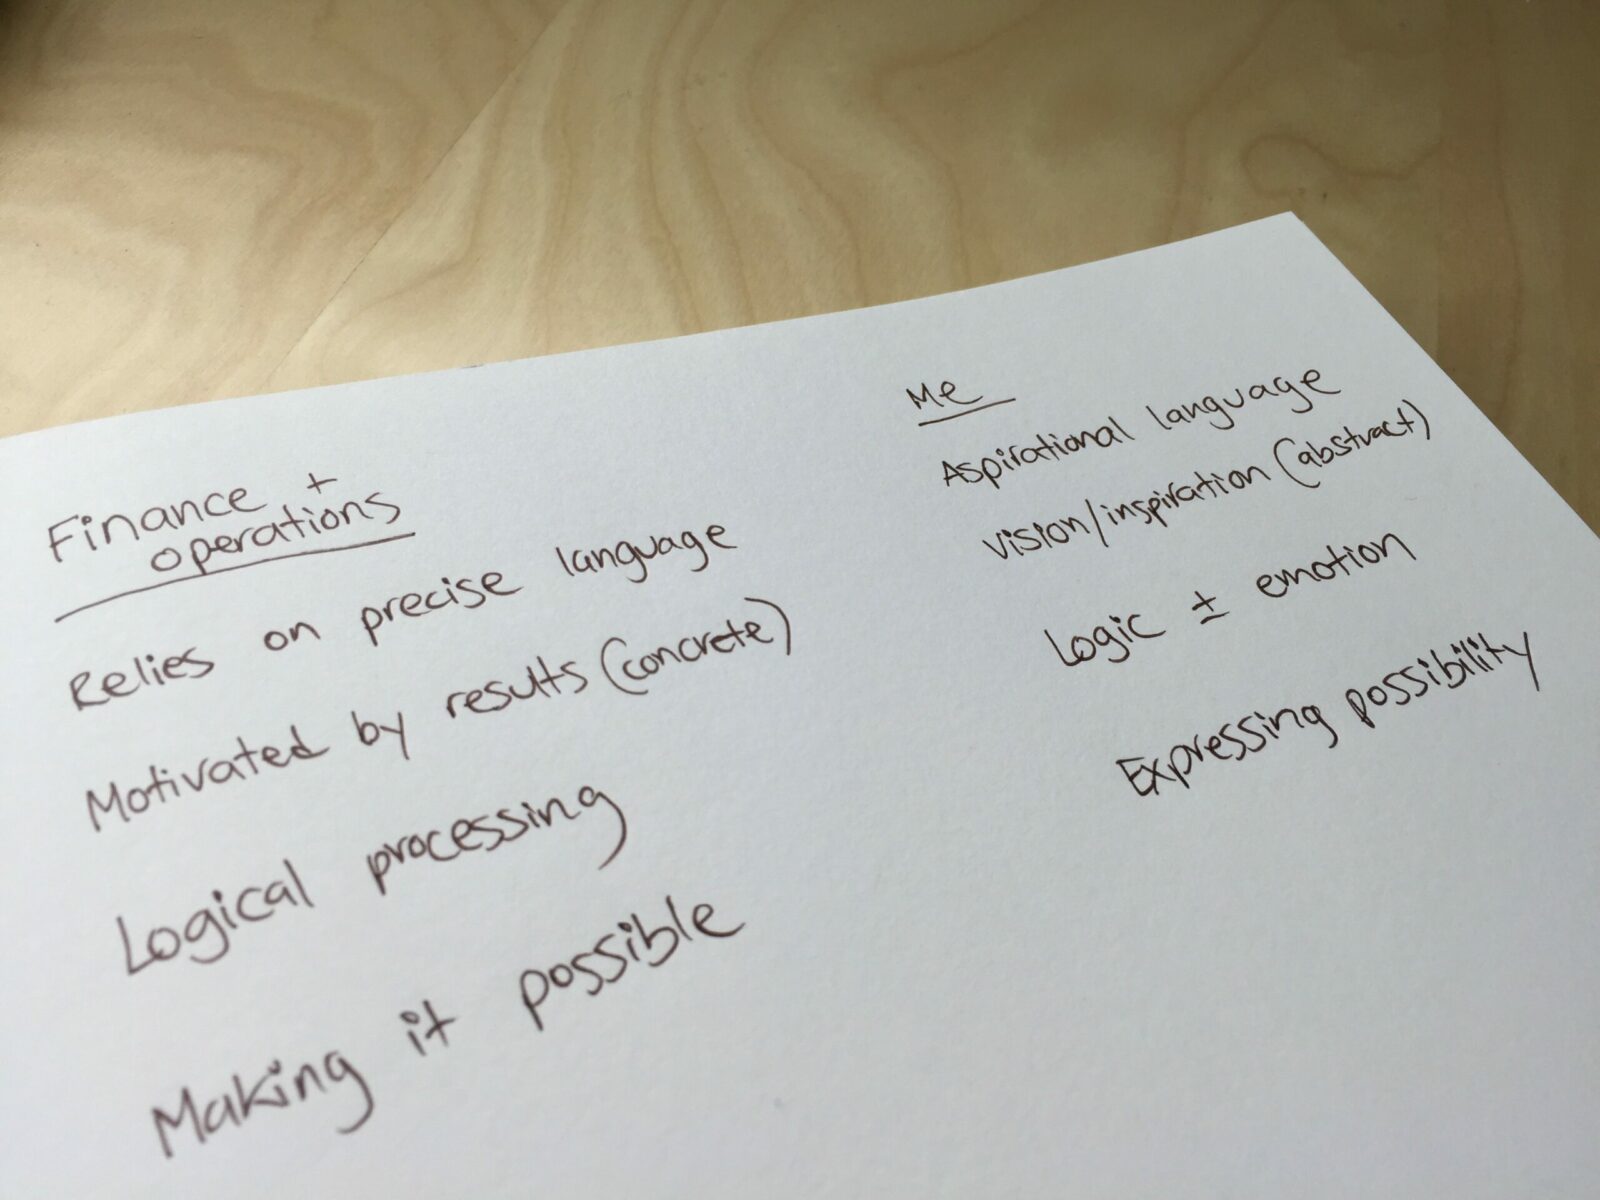 Finance +
operations
Relies on precise language
Motivated by results (concrete)
Logical processing
Making it possible
Me
Aspirational language
vision/inspiration (abstract)
Logic ± emotion
Expressing possibility